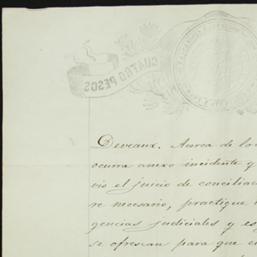 CUATRO PESOS
Deveaux. Acerca de lo
ocurra anexo incidente y
cio el juicio de concilia
re necesario, practique
gencias judiciales y es
se ofrezcan para que e